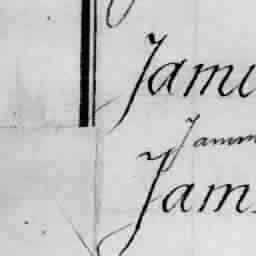 Jami
Jamm
Jam